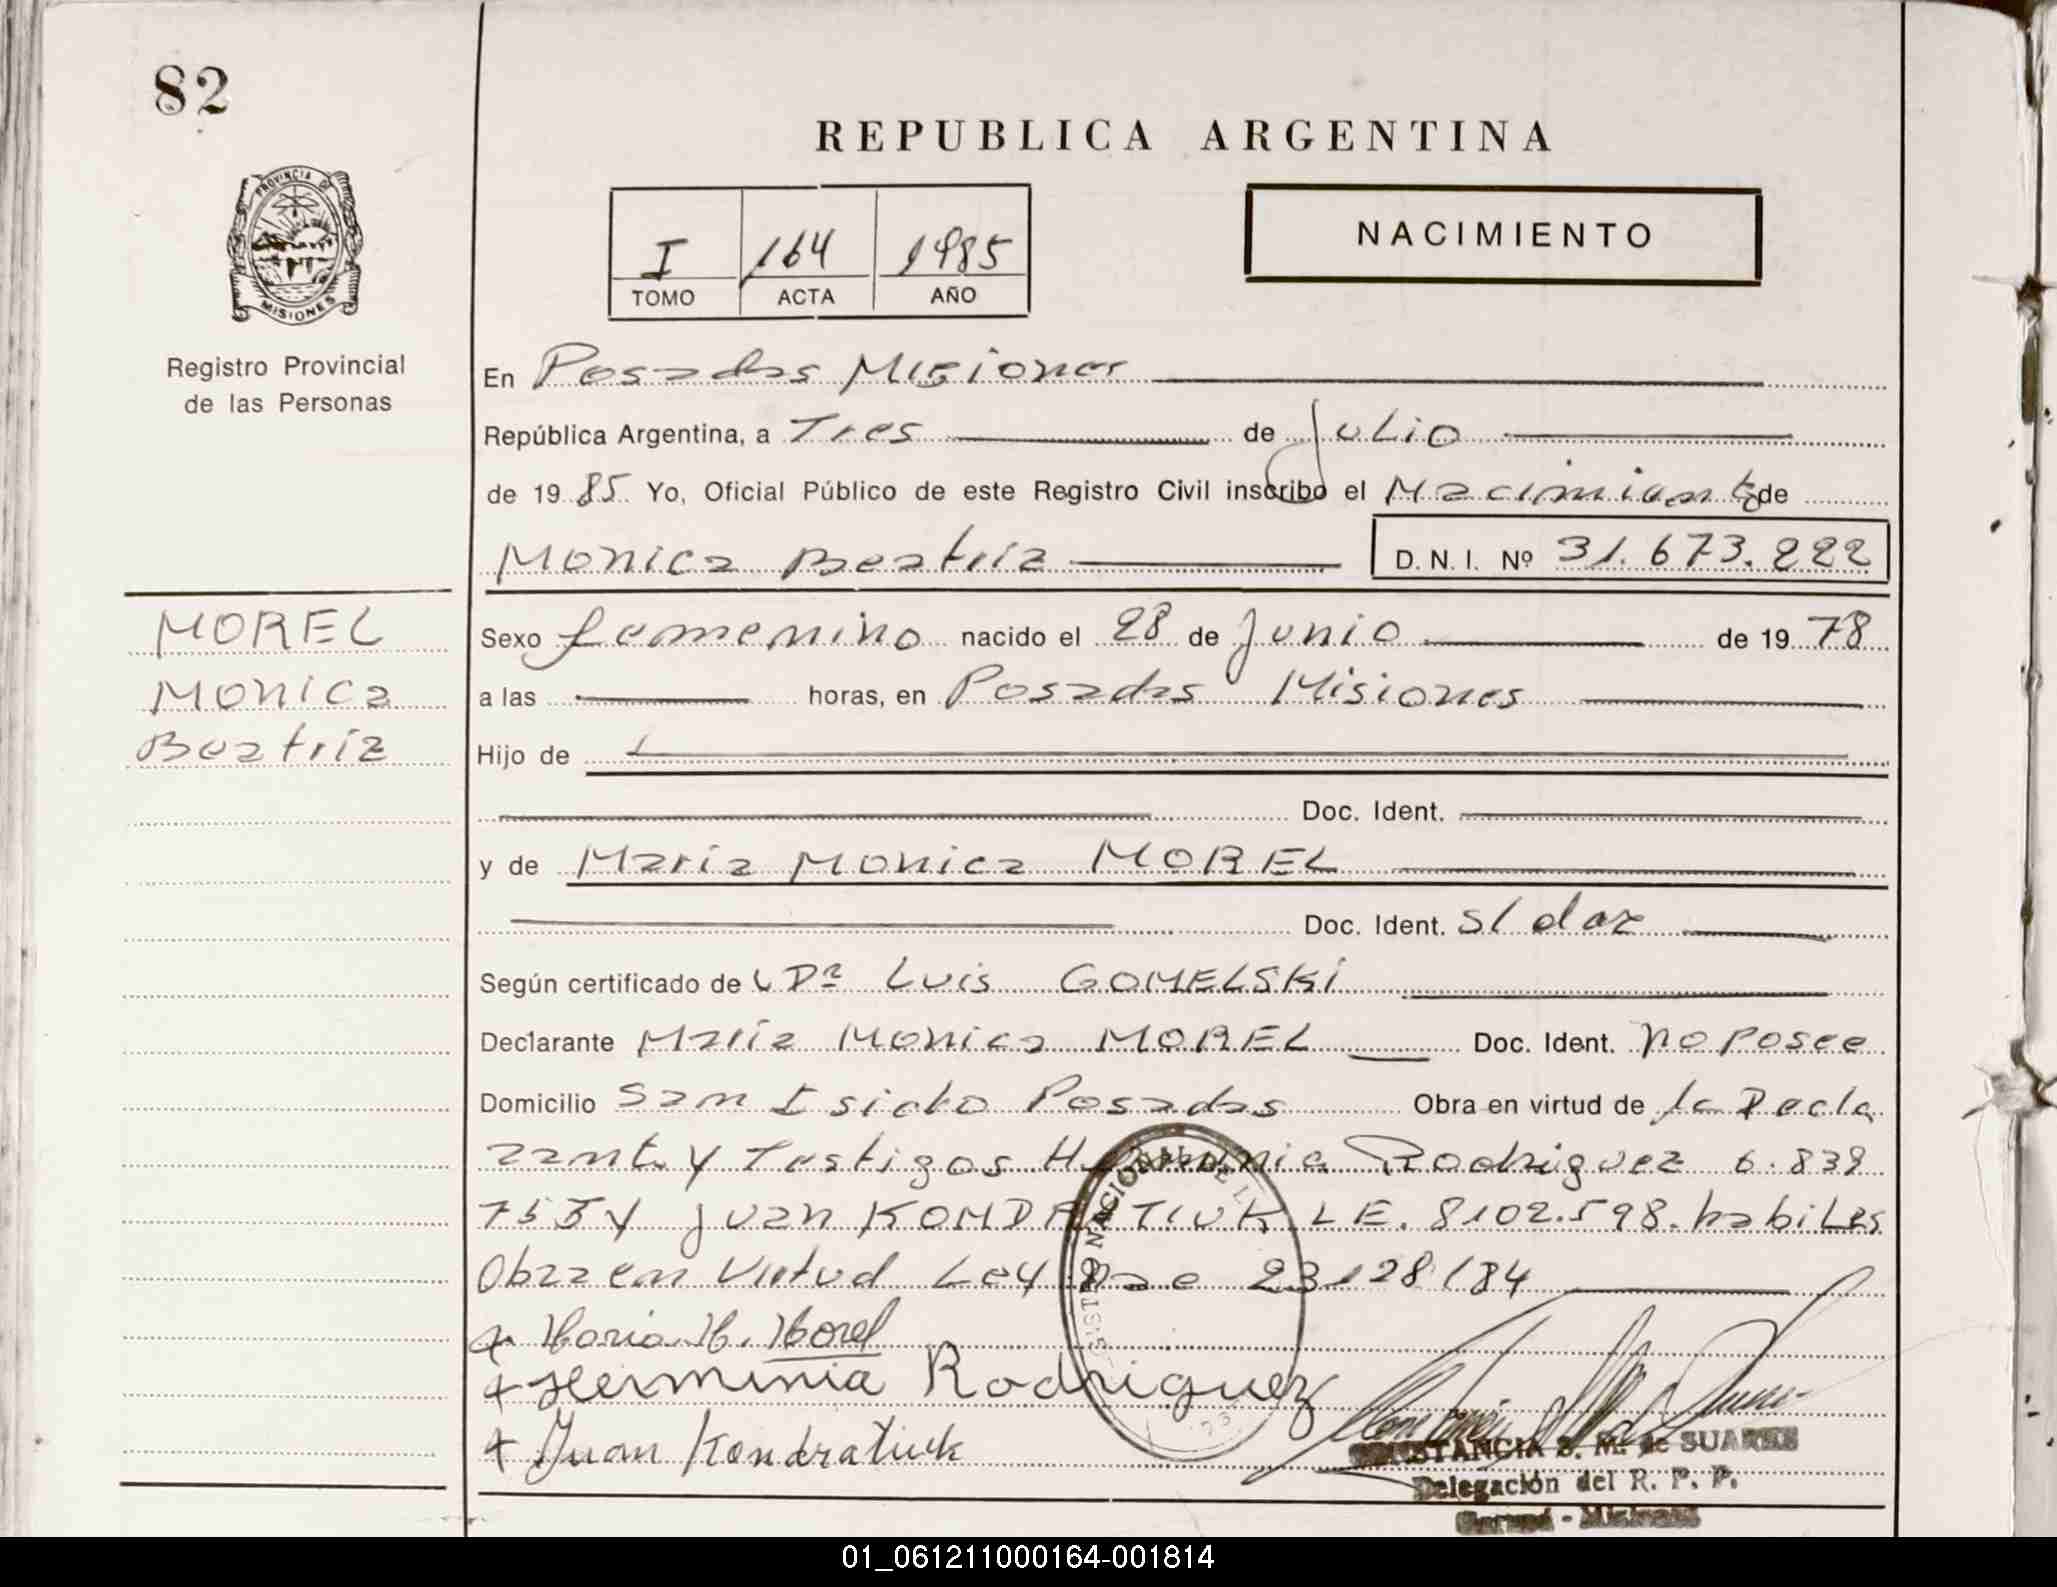 82
REPUBLICA ARGENTINA
PROVINCIA DE
MISIONES
Registro Provincial
de las Personas
I 164 1985
TOMO ACTA AÑO
NACIMIENTO
En Posadas Misiones
República Argentina, a Tres de Julio
de 19 85 Yo, Oficial Público de este Registro Civil inscribo el Nacimiento de
Monica Beatriz D. N. I. Nº 31.673.222
MOREL
Monica
Beatriz
Sexo femenino nacido el 28 de Junio de 19 78
a las horas, en Posadas Misiones
Hijo de
Doc. Ident.
y de Maria Monica MOREL
Doc. Ident. S/ daz
Según certificado de Dr Luis GOMELSKI
Declarante Maria Monica MOREL Doc. Ident. no posee
Domicilio San Isidro Posadas Obra en virtud de la Decla
rante y Testigos Herminia Rodriguez 6.839
753 y Juan KONDRATIUK LE. 8102.598. habiles
Obra en Virtud Ley 23128/84
+ Maria M. Morel
+ Herminia Rodriguez
+ Juan Kondratiuk
CONSTANCIA S. M. de SUARES
Delegación del R. P. P.
Garupá - Misiones
01_061211000164-001814